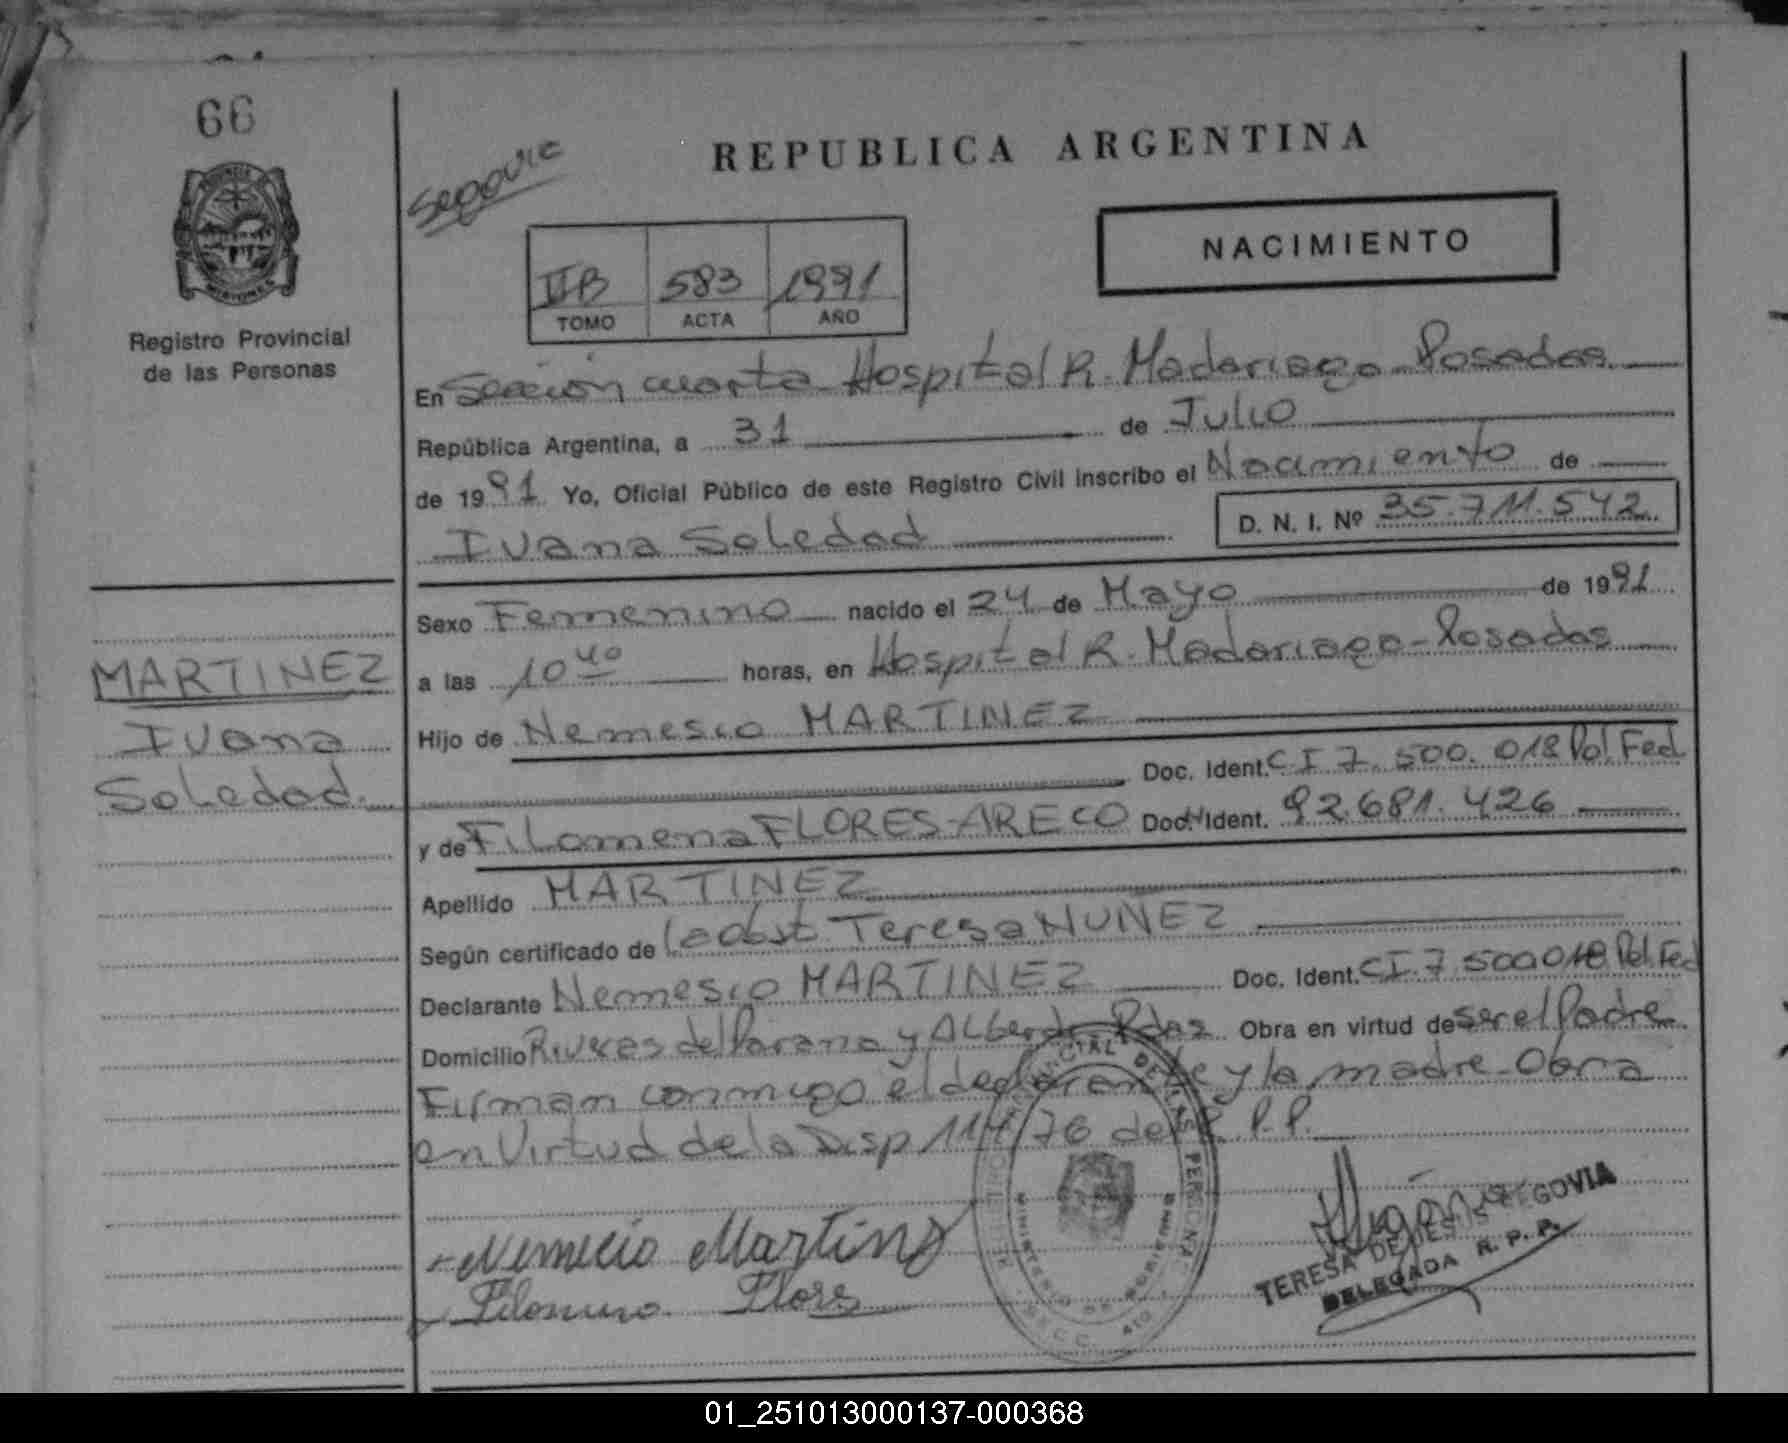 66
Segovia
REPUBLICA ARGENTINA
NACIMIENTO
IIB 583 1991
TOMO ACTA AÑO
Registro Provincial
de las Personas
En Sección cuarta Hospital R. Madariaga - Posadas
República Argentina, a 31 de Julio
de 1991 Yo, Oficial Público de este Registro Civil inscribo el Nacimiento de
Ivana Soledad D. N. I. Nº 35.711.542
Sexo Femenino nacido el 24 de Mayo de 1991
a las 10 40 horas, en Hospital R. Madariaga - Posadas
Hijo de Nemesio MARTINEZ
Doc. Ident. CI 7.500.018 Pol. Fed
y de Filomena FLORES-ARECO Doc. Ident. 92.681.426
Apellido MARTINEZ
Según certificado de la obst Teresa NUÑEZ
Declarante Nemesio MARTINEZ Doc. Ident. CI.7.500018 Pol. Fed
Domicilio Riveras del Parana y Alberdi - Pdas Obra en virtud de ser el Padre
Firman conmigo el declarante y la madre - Obra
en Virtud de la Disp 114/76 del R.P.P.
MARTINEZ
Ivana
Soledad
Nemecio Martinez
Filomena Flores
MINISTERIO DE GOBIERNO
TERESA DE JESUS SEGOVIA
DELEGADA R. P. P.
01_251013000137-000368